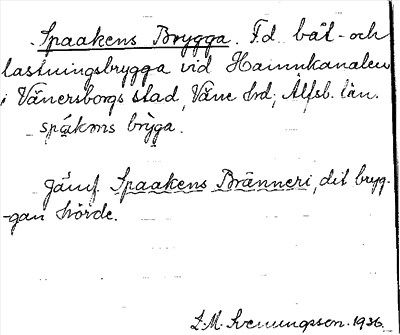 Spaakens Brygga. F.d. båt- och
lastningsbrygga vid Hamnkanalen
i Vänersborgs stad, Väne hrd, Älfsb. län.
spåkɐns brỳga.
Jämf Spaakens Bränneri, dit bryg-
gan hörde.
L.M. Svenungsson. 1936.